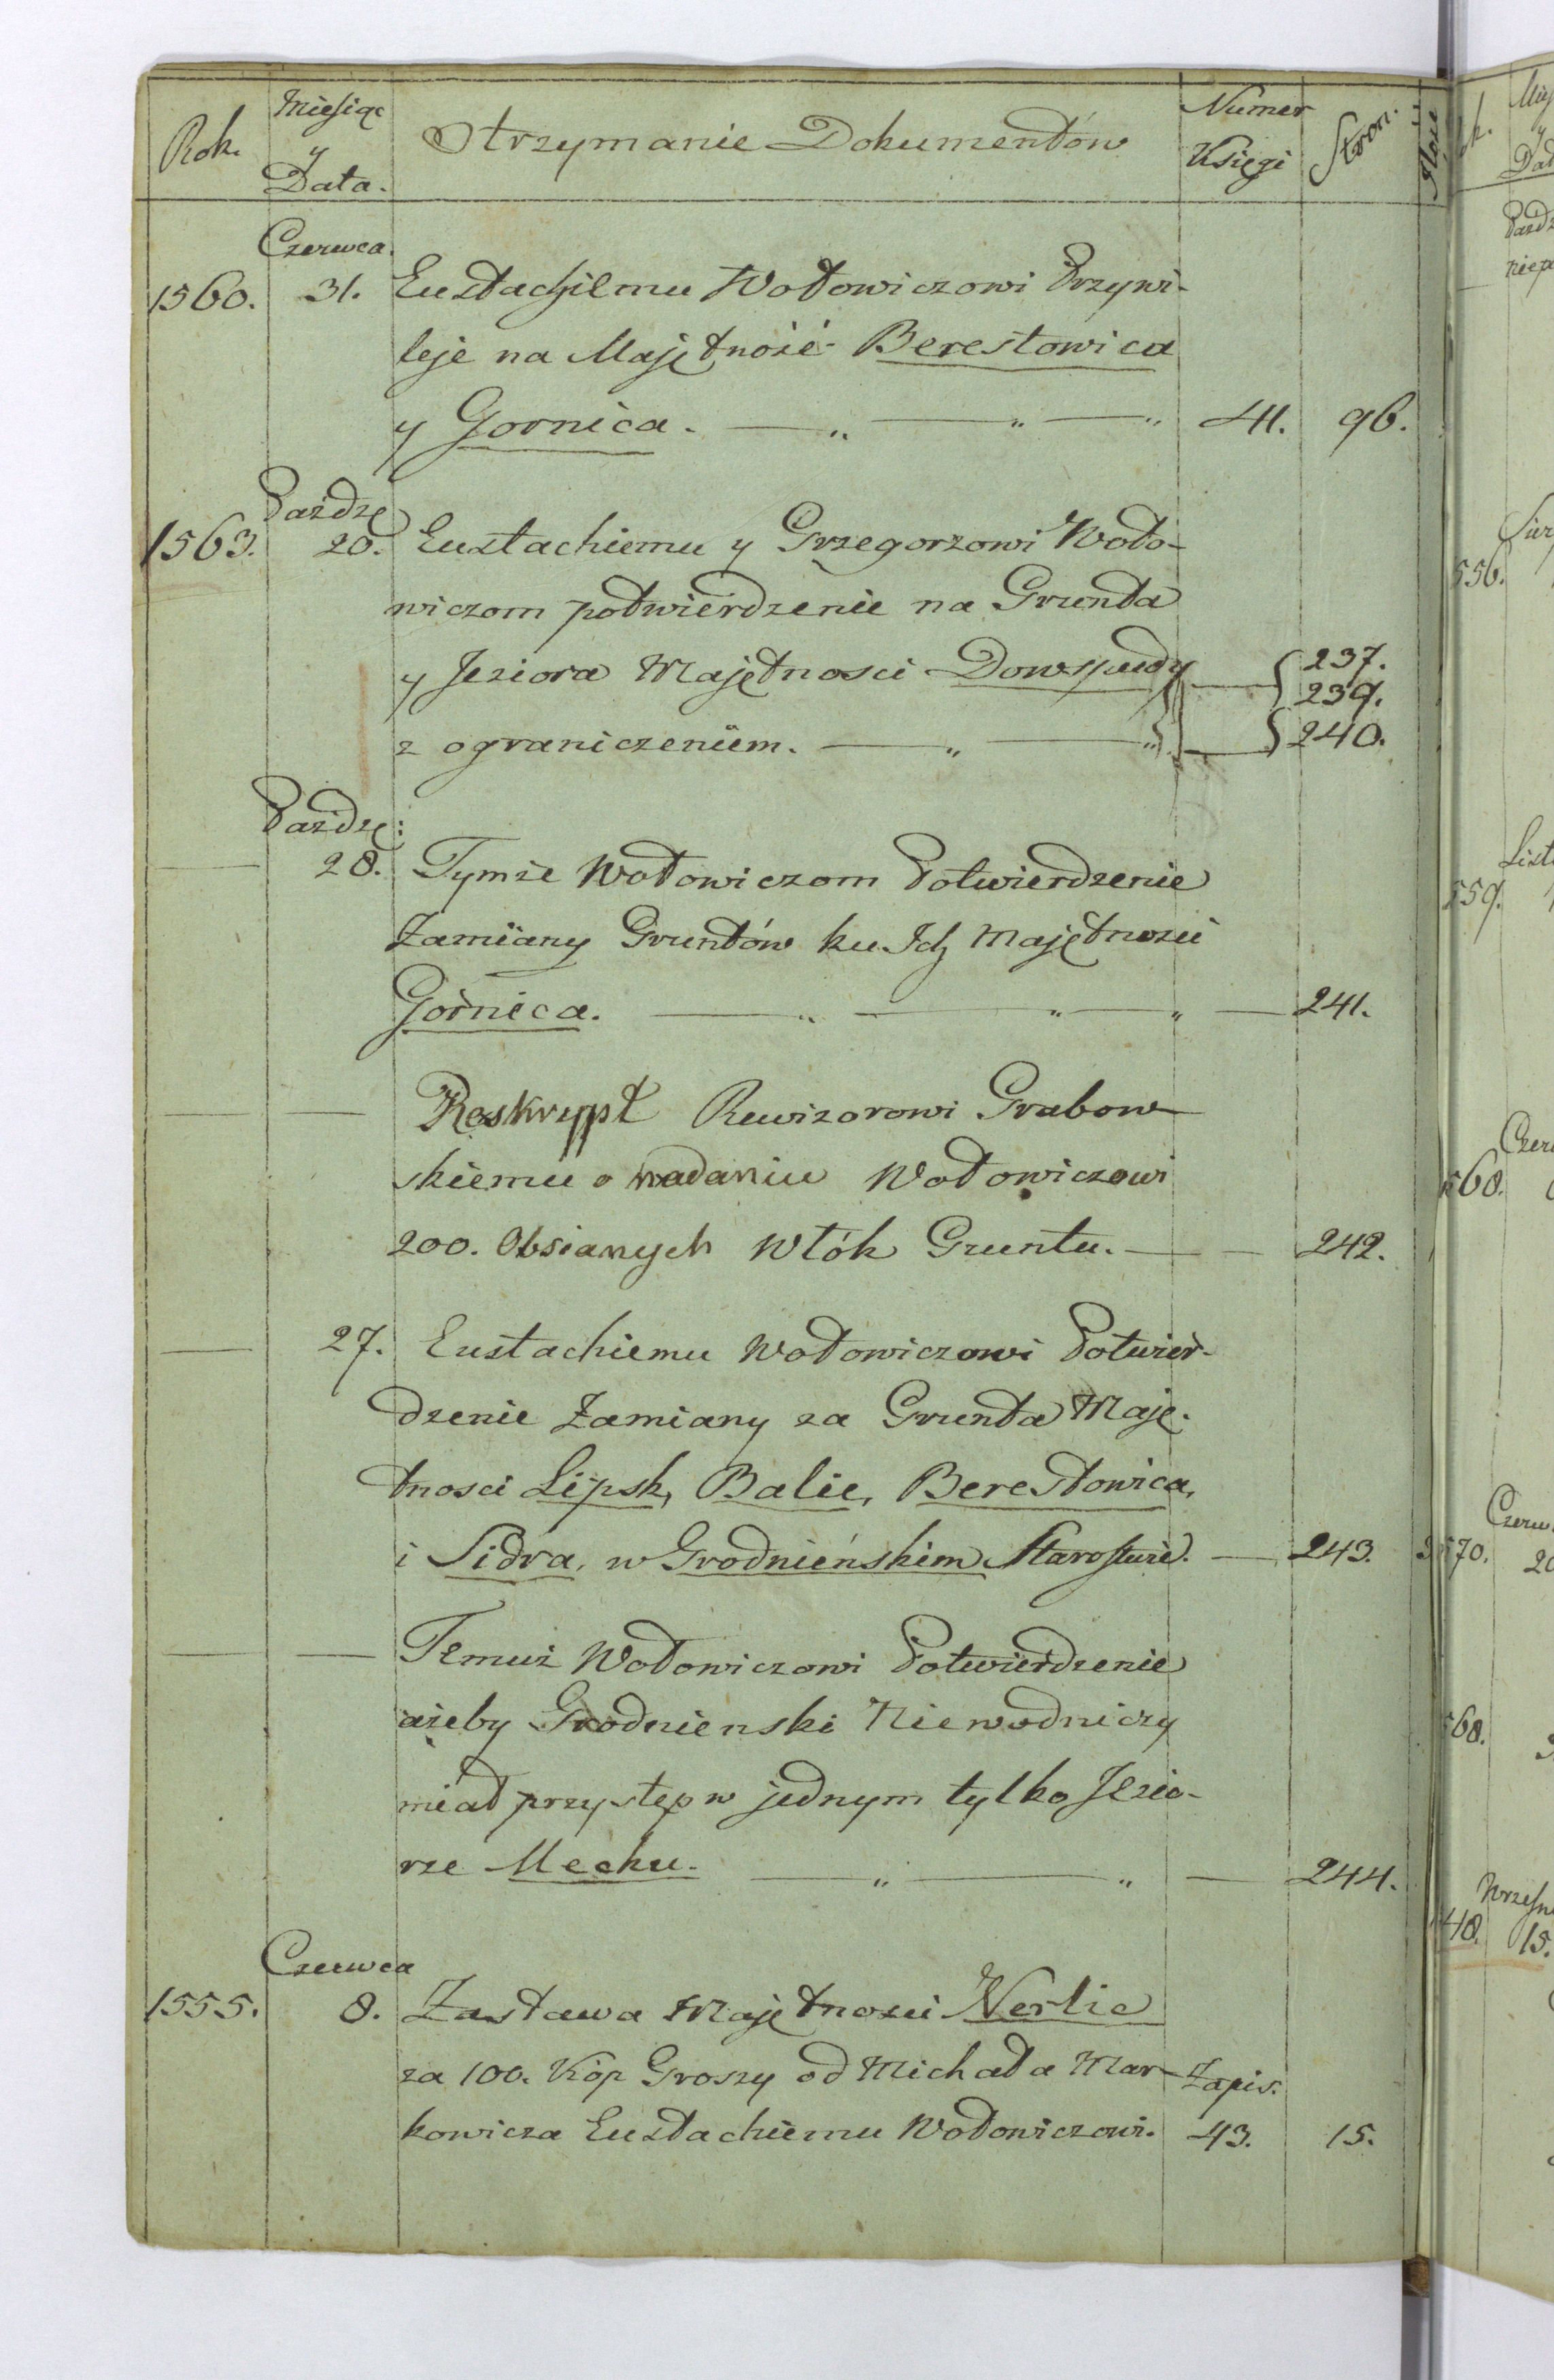 Rok. Miesiąc y Data. Otrzymanie Dokumentów Numer Księgi Stron. Ilość
Czerwca.
1560. 31. Eustachiemu Wołowiczowi Przywi-
leje na Majętność Berestowica
y Gornica. — „ — „ — „ 41. 96.
Paźdze
1563. 20. Eustachiemu y Grzegorzowi Woło-
wiczom potwierdzenie na Grunta
y Jeziora Majętnosci Dowspudy — { 237. 239.
z ograniczeniem. — „ — „ — { 240.
Paźdze:
— 28. Tymże Wołowiczom Potwierdzenie
Zamiany Gruntów ku Ich Majętnosci
Górnica. — „ — „ — „ — 241.
— — Reskrypt Rewizorowi Grabow-
skiemu o nadaniu Wołowiczowi
200. Obsianych Włók Gruntu. — — 242.
— 27. Eustachiemu Wołowiczowi Potwier-
dzenie Zamiany za Grunta Maję-
tnosci Lipsk, Balie, Berestowica,
i Sidra, w Grodnieńskim Starostwie. — 243.
— — Temuż Wołowiczowi Potwierdzenie
ażeby Grodnienski Niewodniczy
miał przystęp w jednym tylko Jezio-
rze Mecku. — „ — „ — 244.
Czerwca
1555. 8. Zastawa Majętnosci Nerlic
za 100. Kóp Groszy od Michała Mar- Zapis.
kowicza Eustachiemu Wołowiczowi. 43. 15.